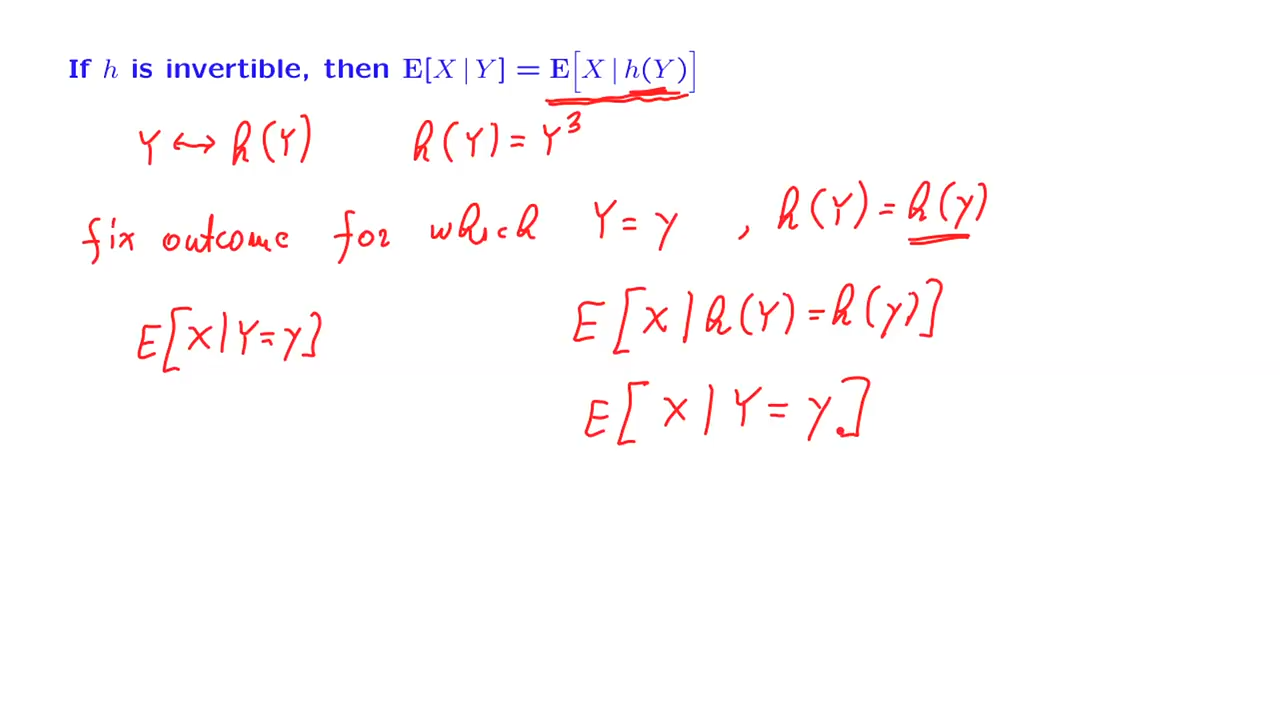 If h is invertible, then E[X | Y] = E[X | h(Y)]
Y ↔ h(Y) h(Y) = Y³
fix outcome for which Y = y , h(Y) = h(y)
E[X | Y = y] E[X | h(Y) = h(y)]
E[X | Y = y]